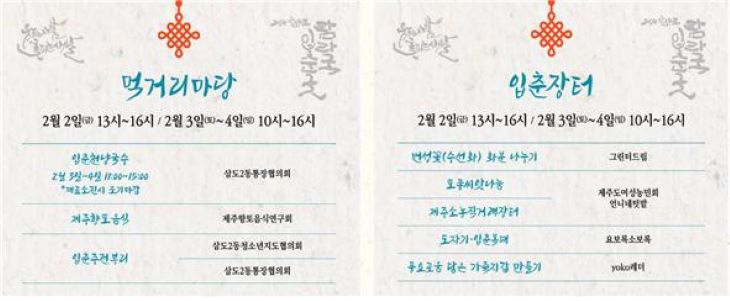 먹거리마당
2월 2일(금) 13시~16시 / 2월 3일(토)~4일(일) 10시~16시
입춘천냥국수
2월 3일~4일 11:00~15:00
*재료소진시 조기마감
삼도2동통장협의회
제주향토음식
제주향토음식연구회
입춘주전부리
삼도2동청소년지도협의회
삼도2동통장협의회
탐라국
입춘굿
입춘장터
2월 2일(금) 13시~16시 / 2월 3일(토)~4일(일) 10시~16시
번성꽃(수선화) 화분 나누기
그린터드림
토종씨앗나눔
제주소농직거래장터
제주도여성농민회
언니네텃밭
도자기·입춘등대
요보록소보록
풍요로움 담은 가죽지갑 만들기
yoko레더
탐라국
입춘굿